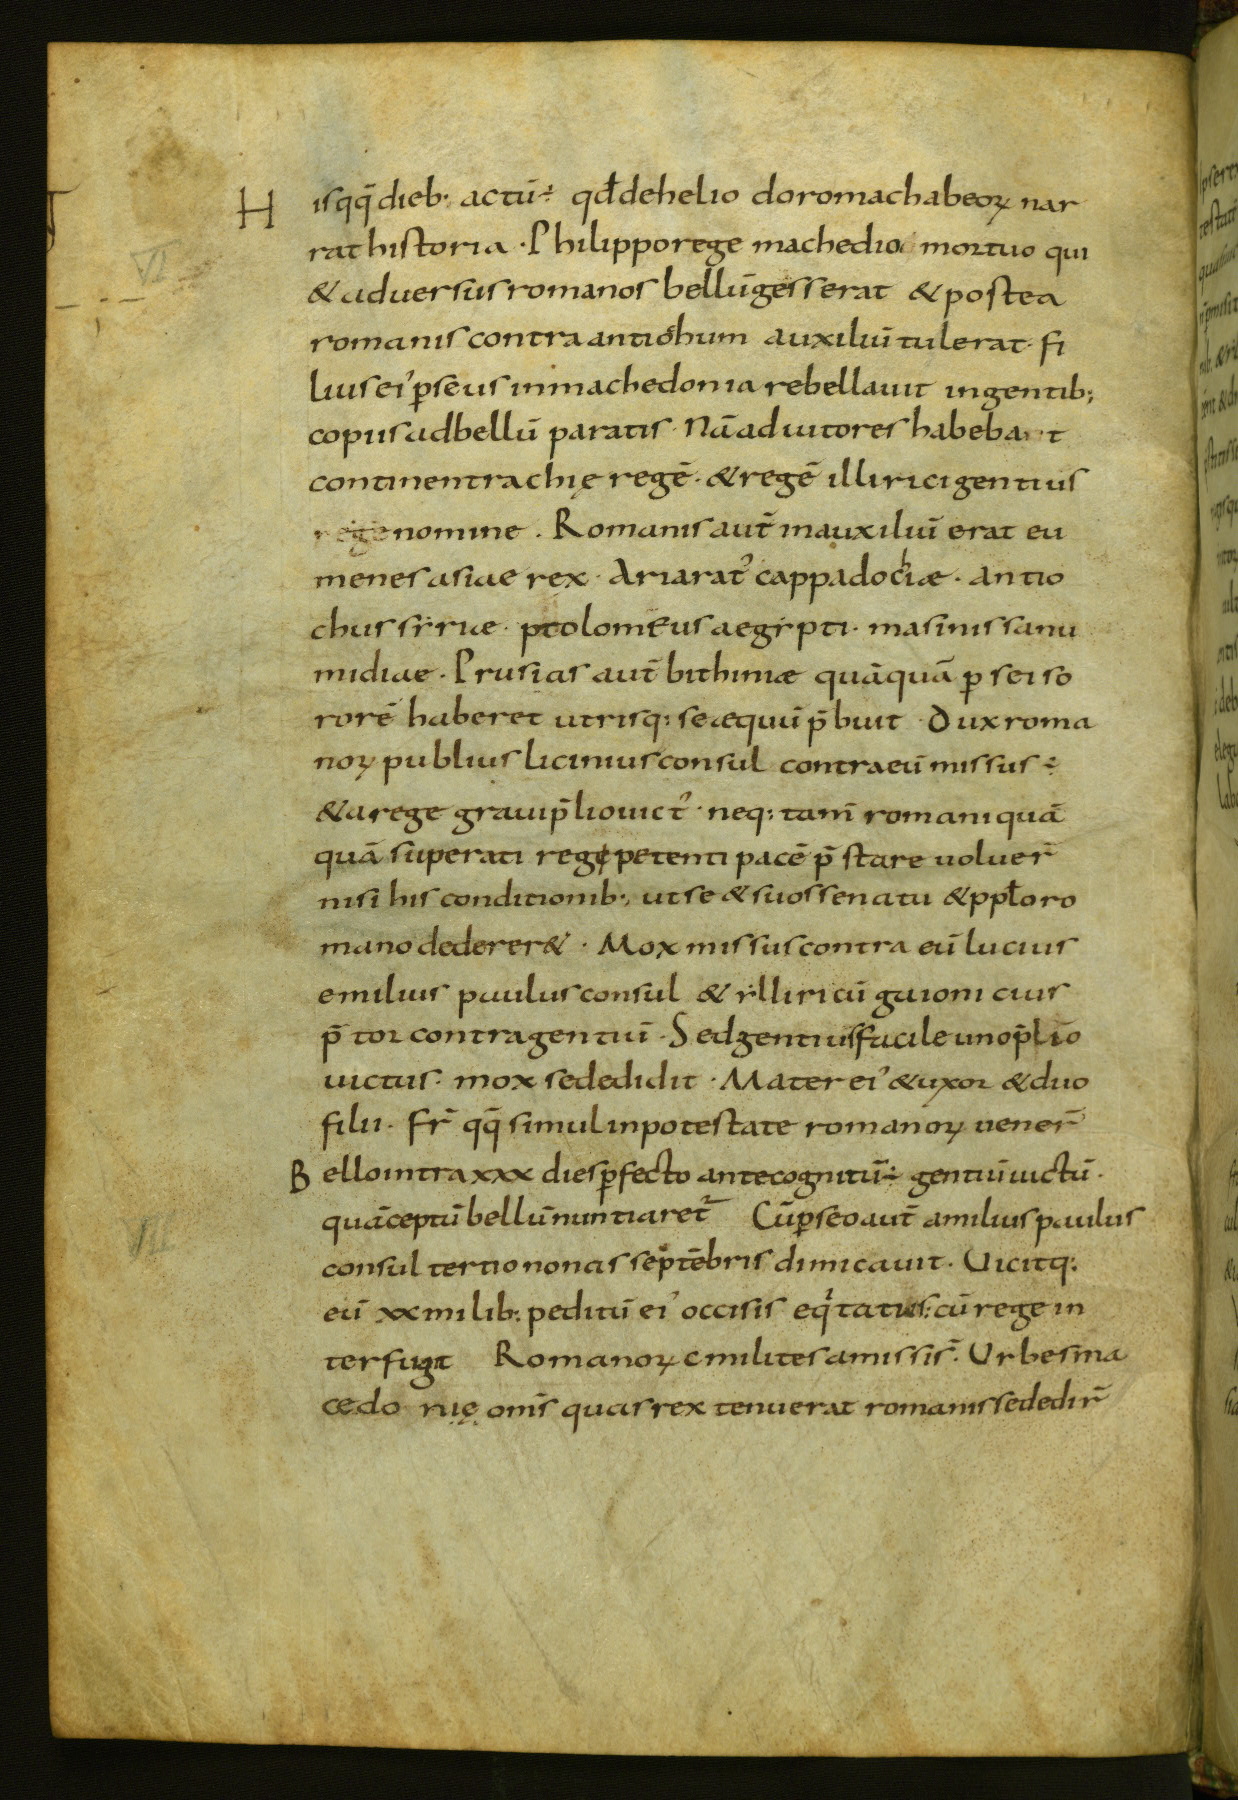 H isqq̄ dieb· actū÷ qđ dehelio doromachabeoꝝ nar
rat historia · Philippo rege machedio mortuo qui
& aduersus romanos bellū gesserat & postea
romanis contra antiochum auxiliū tulerat · fi
lius ei' ꝑseus in machedonia rebellauit ingentib;
copiis ad bellū paratis · Nā adiutores habebat
continentrachię regē · & regē illirici gentius
rege nomine . Romanis aut̄ in auxiliū erat eu
menes asiae rex · Ariarat' cappadociæ · antio
chus syriae · ptolomeus aegypti · masinissa nu
midiae · Prusias aut̄ bithiniæ quāquā ꝑsei so
rorē haberet utrisq; se æquū p̄buit · Dux roma
noꝝ publius licinius consul contra eū missus ÷
& a rege graui p̄lio uict' · neq; tam̄ romani quā
quā superati regi petenti pacē p̄stare uoluer̄
nisi his conditionib; ut se & suos senatu & ppl̄o ro
mano dederer& · Mox missus contra eū lucius
emilius paulus consul & ylliricū gaioni cius
p̄tor contra gentiū · Sed gentius facile uno p̄lio
uictus · mox se dedidit · Mater ei' & uxor & duo
filii · fr̄ qq̄ simul in potestate romanoꝝ uener̄
B ello intra xxx dies ꝑfecto ante cognitū ÷ gentiū uictū ·
quā ceptū bellū nuntiaret᷑ Cū ꝑseo aut̄ amilius paulus
consul tertio nonas septēbris dimicauit · Uicitq;
eū xx milib; peditū ei' occisis eqitatus; cū rege in
ter fugit Romanoꝝ c milites amissis̄ · Urbes ma
cedo nię om̄s quas rex tenuerat romanis se dedir̄
VI
VII